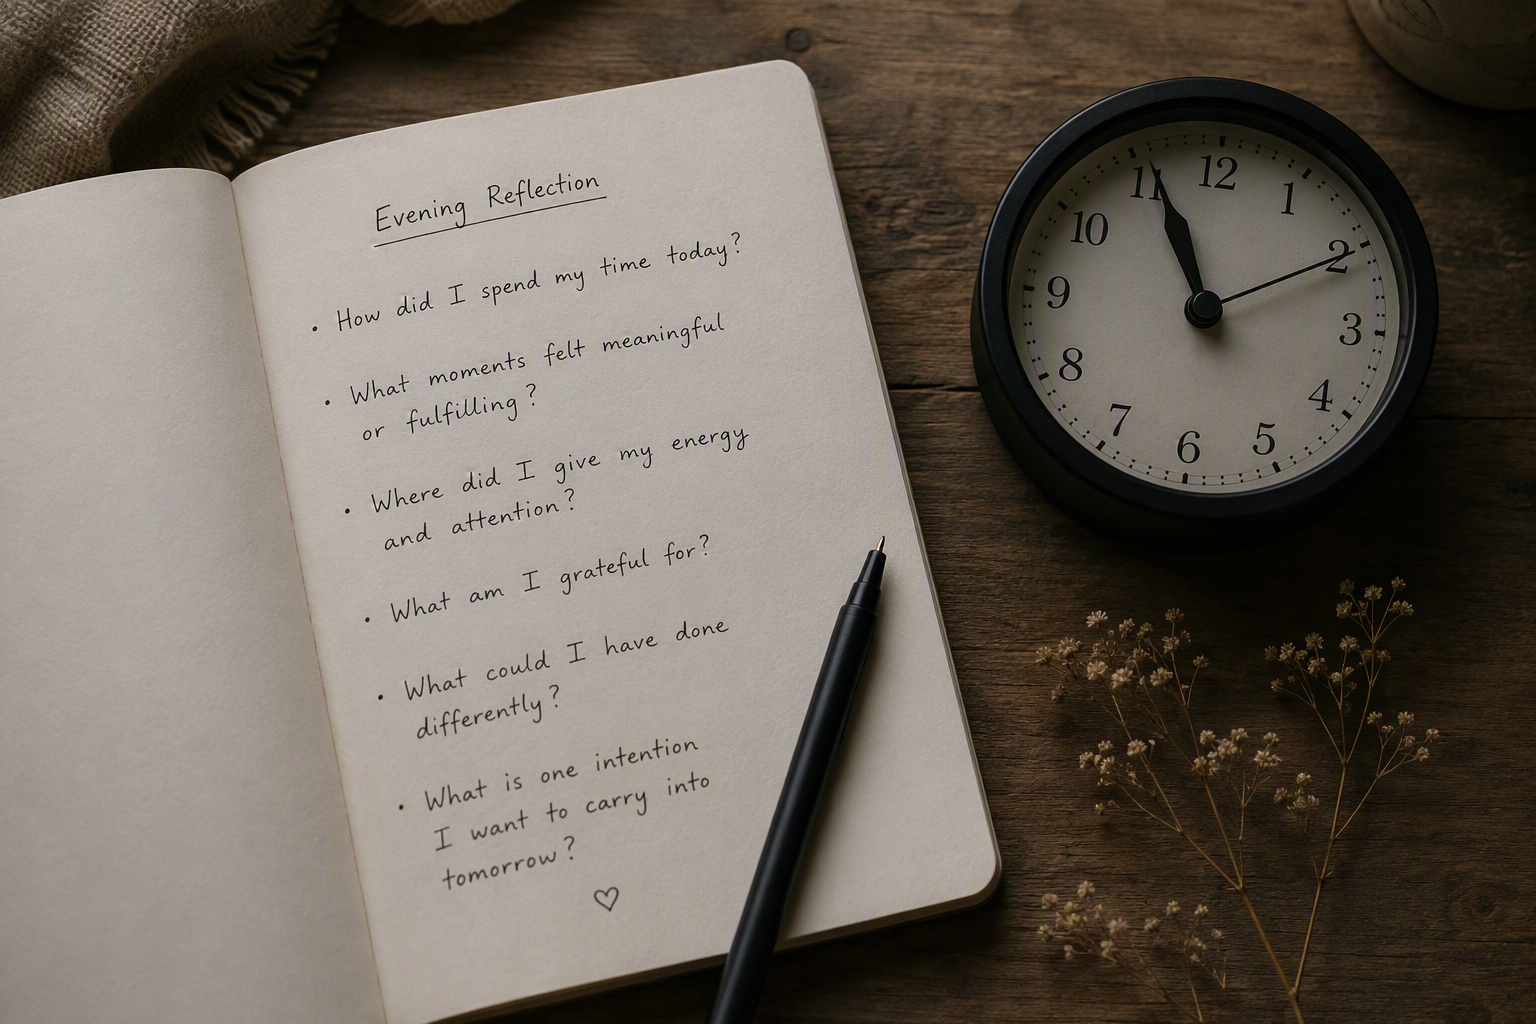 Evening Reflection
• How did I spend my time today?
• What moments felt meaningful
or fulfilling?
• Where did I give my energy
and attention?
• What am I grateful for?
• What could I have done
differently?
• What is one intention
I want to carry into
tomorrow?
♡
12
1
2
3
4
5
6
7
8
9
10
11